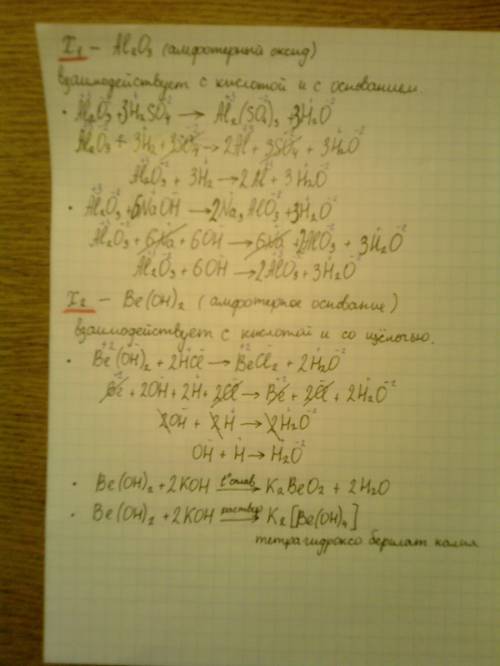 I₁ – Al₂O₃ (амфотерный оксид)
взаимодействует с кислотой и с основанием.
• Al₂O₃ + 3H₂SO₄ → Al₂(SO₄)₃ + 3H₂O
Al₂O₃ + 3H₂ + 3SO₄ → 2Al + 3SO₄ + 3H₂O
Al₂O₃ + 3H₂ → 2Al + 3H₂O
• Al₂O₃ + 6NaOH → 2Na₃AlO₃ + 3H₂O
Al₂O₃ + 6Na + 6OH → 6Na + 2AlO₃ + 3H₂O
Al₂O₃ + 6OH → 2AlO₃ + 3H₂O
I₂ – Be(OH)₂ (амфотерное основание)
взаимодействует с кислотой и со щёлочью.
• Be(OH)₂ + 2HCl → BeCl₂ + 2H₂O
Be + 2OH + 2H + 2Cl → Be + 2Cl + 2H₂O
2OH + 2H → 2H₂O
OH + H → H₂O
• Be(OH)₂ + 2KOH t° сплав → K₂BeO₂ + 2H₂O
• Be(OH)₂ + 2KOH раствор → K₂[Be(OH)₄]
тетрагидроксо берилат калия